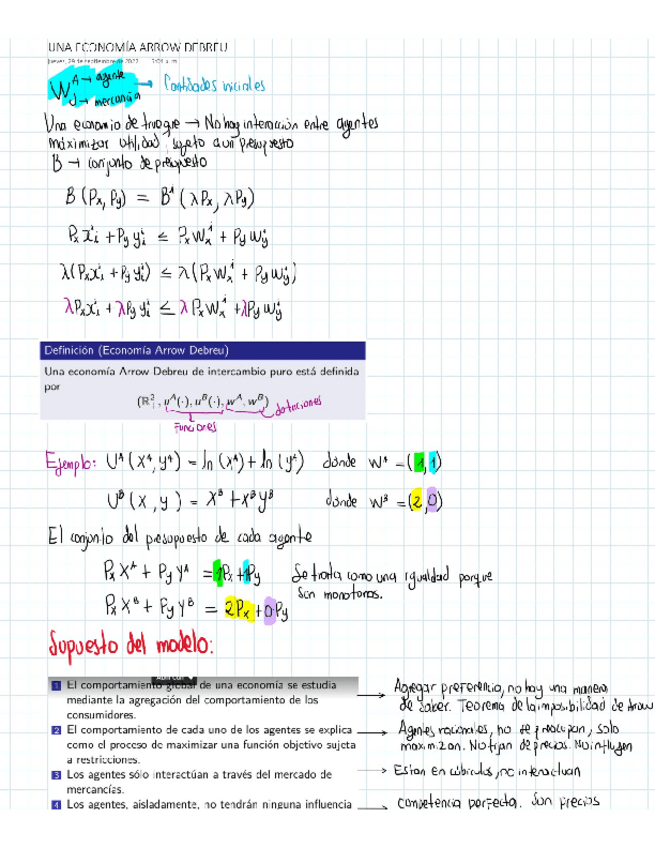 UNA ECONOMÍA ARROW DEBREU
jueves, 29 de septiembre de 2022
W A → agente
J → mercancía → Cantidades iniciales
Una economía de trueque → No hay interacción entre agentes
maximizar utilidad sujeto a un presupuesto
B → conjunto de presupuesto
B (Px, Py) = B¹ (λPx, λPy)
Px xⁱᵢ + Py yⁱᵢ ≤ Px wₓⁱ + Py w_yⁱ
λ(Px xⁱᵢ + Py yⁱᵢ) ≤ λ(Px wₓⁱ + Py w_yⁱ)
λPx xⁱᵢ + λPy yⁱᵢ ≤ λPx wₓⁱ + λPy w_yⁱ
Definición (Economía Arrow Debreu)
Una economía Arrow Debreu de intercambio puro está definida
por
(ℝ²₊, u^A(·), u^B(·), w^A, w^B) dotaciones
Funciones
Ejemplo: U^A (X^A, y^A) = ln (X^A) + ln (y^A) donde W^A = (1,1)
U^B (X, y) = X^B + X^B y^B donde W^B = (2,0)
El conjunto del presupuesto de cada agente
Px X^A + Py y^A = 1Px + 1Py Se trata como una igualdad porque
son monotonas.
Px X^B + Py y^B = 2Px + 0Py
Supuesto del modelo:
1 El comportamiento global de una economía se estudia
mediante la agregación del comportamiento de los
consumidores.
→ Agregar preferencia, no hay una manera
de saber. Teorema de la imposibilidad de Arrow
2 El comportamiento de cada uno de los agentes se explica
como el proceso de maximizar una función objetivo sujeta
a restricciones.
→ Agentes racionales, no se preocupan, solo
maximizan. No fijan de precios. No influyen
3 Los agentes sólo interactúan a través del mercado de
mercancías.
→ Estan en cubiculos, no interactuan
4 Los agentes, aisladamente, no tendrán ninguna influencia → competencia perfecta. Son precios